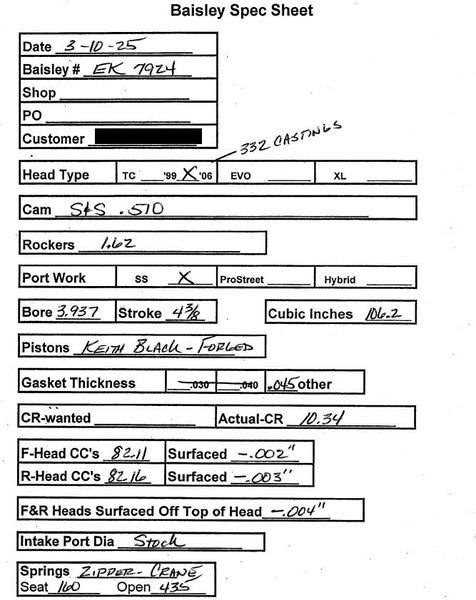 Baisley Spec Sheet
Date 3-10-25
Baisley # EK 7924
Shop
PO
Customer
332 CASTINGS
Head Type TC '99 X '06 EVO XL
Cam S&S .510
Rockers 1.62
Port Work SS X ProStreet Hybrid
Bore 3.937 Stroke 4 3/8 Cubic Inches 106.2
Pistons KEITH BLACK - FORGED
Gasket Thickness .030 .040 .045 other
CR-wanted Actual-CR 10.34
F-Head CC's 82.11 Surfaced -.002"
R-Head CC's 82.16 Surfaced -.003"
F&R Heads Surfaced Off Top of Head -.004"
Intake Port Dia Stock
Springs ZIPPER - CRANE
Seat 160 Open 435